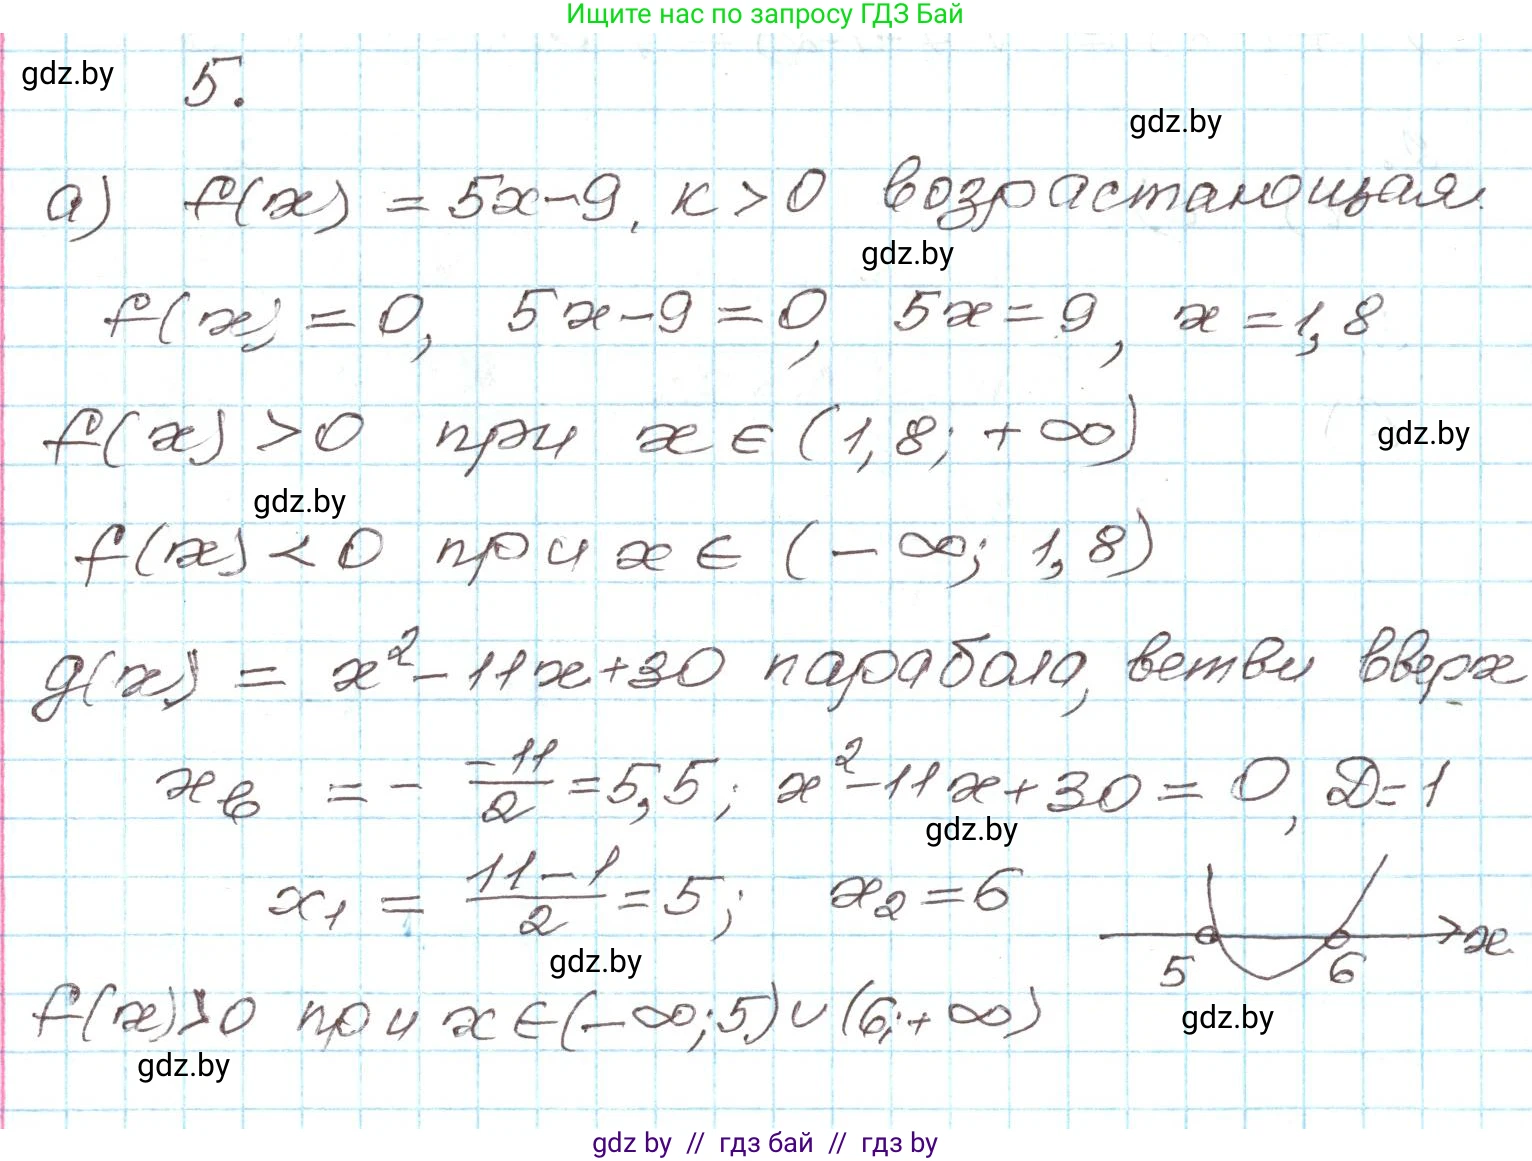 Ищите нас по запросу ГДЗ Бай
gdz.by
5.
gdz.by
а) f(x) = 5x-9, к > 0 возрастающая.
gdz.by
f(x) = 0, 5x-9=0, 5x=9, x=1,8
f(x) > 0 при x ∈ (1,8; +∞)
gdz.by
gdz.by
f(x) < 0 при x ∈ (-∞; 1,8)
g(x) = x²-11x+30 парабола, ветви вверх
xв = - -11/2 = 5,5; x²-11x+30=0, D=1
gdz.by
x₁ = 11-1/2 = 5; x₂=6
x
5 6
gdz.by
gdz.by
f(x)>0 при x∈(-∞;5)∪(6;+∞)
gdz.by
gdz by // гдз бай // гдз by